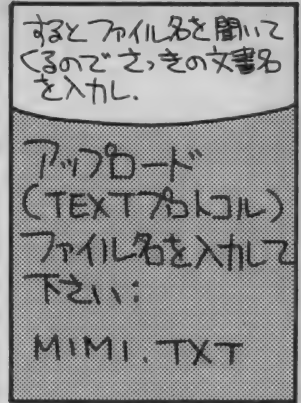 するとファイル名を聞いて
くるのでさっきの文書名
を入力し.
アップロード
(TEXTプロトコル)
ファイル名を入力して
下さい:
MIMI. TXT